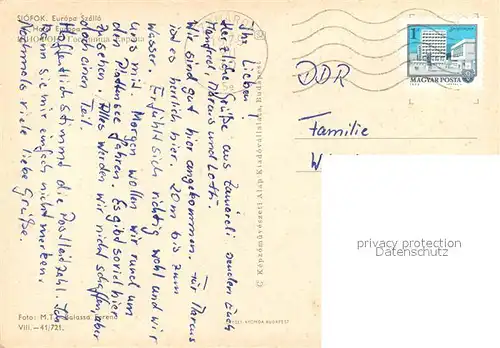 SIÓFOK. Európa Szálló
Ihr Lieben!
Herzliche Grüße aus Zamárdi senden Euch
Manfred, Marcus und Loth.
Wir sind gut hier angekommen. Für Marcus
ist es herrlich hier. 20 m bis zum
Wasser. Er fühlt sich richtig wohl und wir
uns mit. Morgen wollen wir rund um
den Plattensee fahren. Es gibt soviel hier
zu sehen. Alles werden wir nicht schaffen, aber
doch einen Teil.
Hoffentlich stimmt die Postleitzahl. Ich
kann sie mir einfach nicht merken.
Nochmals viele liebe Grüße.
Foto: M.T.
VIII.—41/721.
© Képzőművészeti Alap Kiadóvállalata, Budapest
BUDAPEST
1 Ft
MAGYAR POSTA
DDR
Familie
privacy protection
Datenschutz